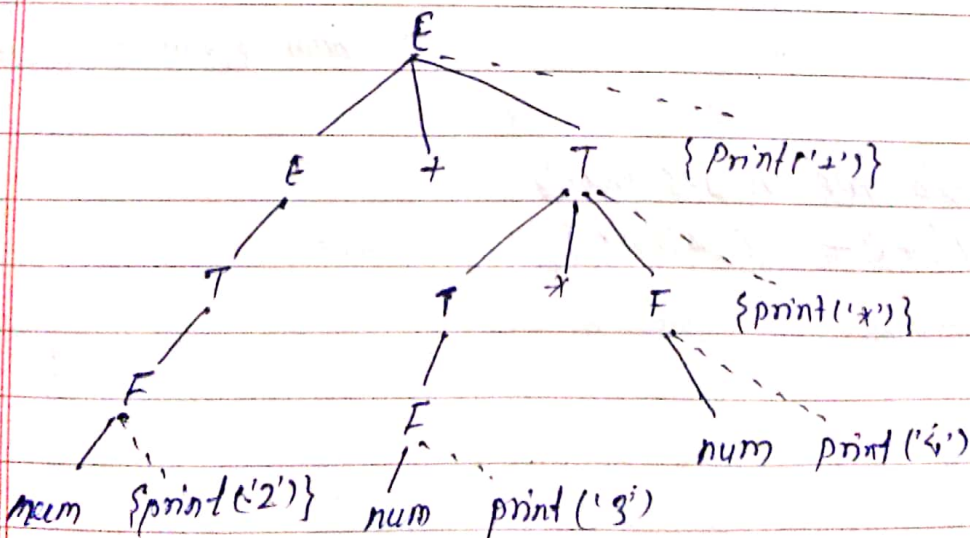 E
E + T {Print('+')}
T T * F {print('*')}
F F num print('4')
num {print('2')} num print('3')